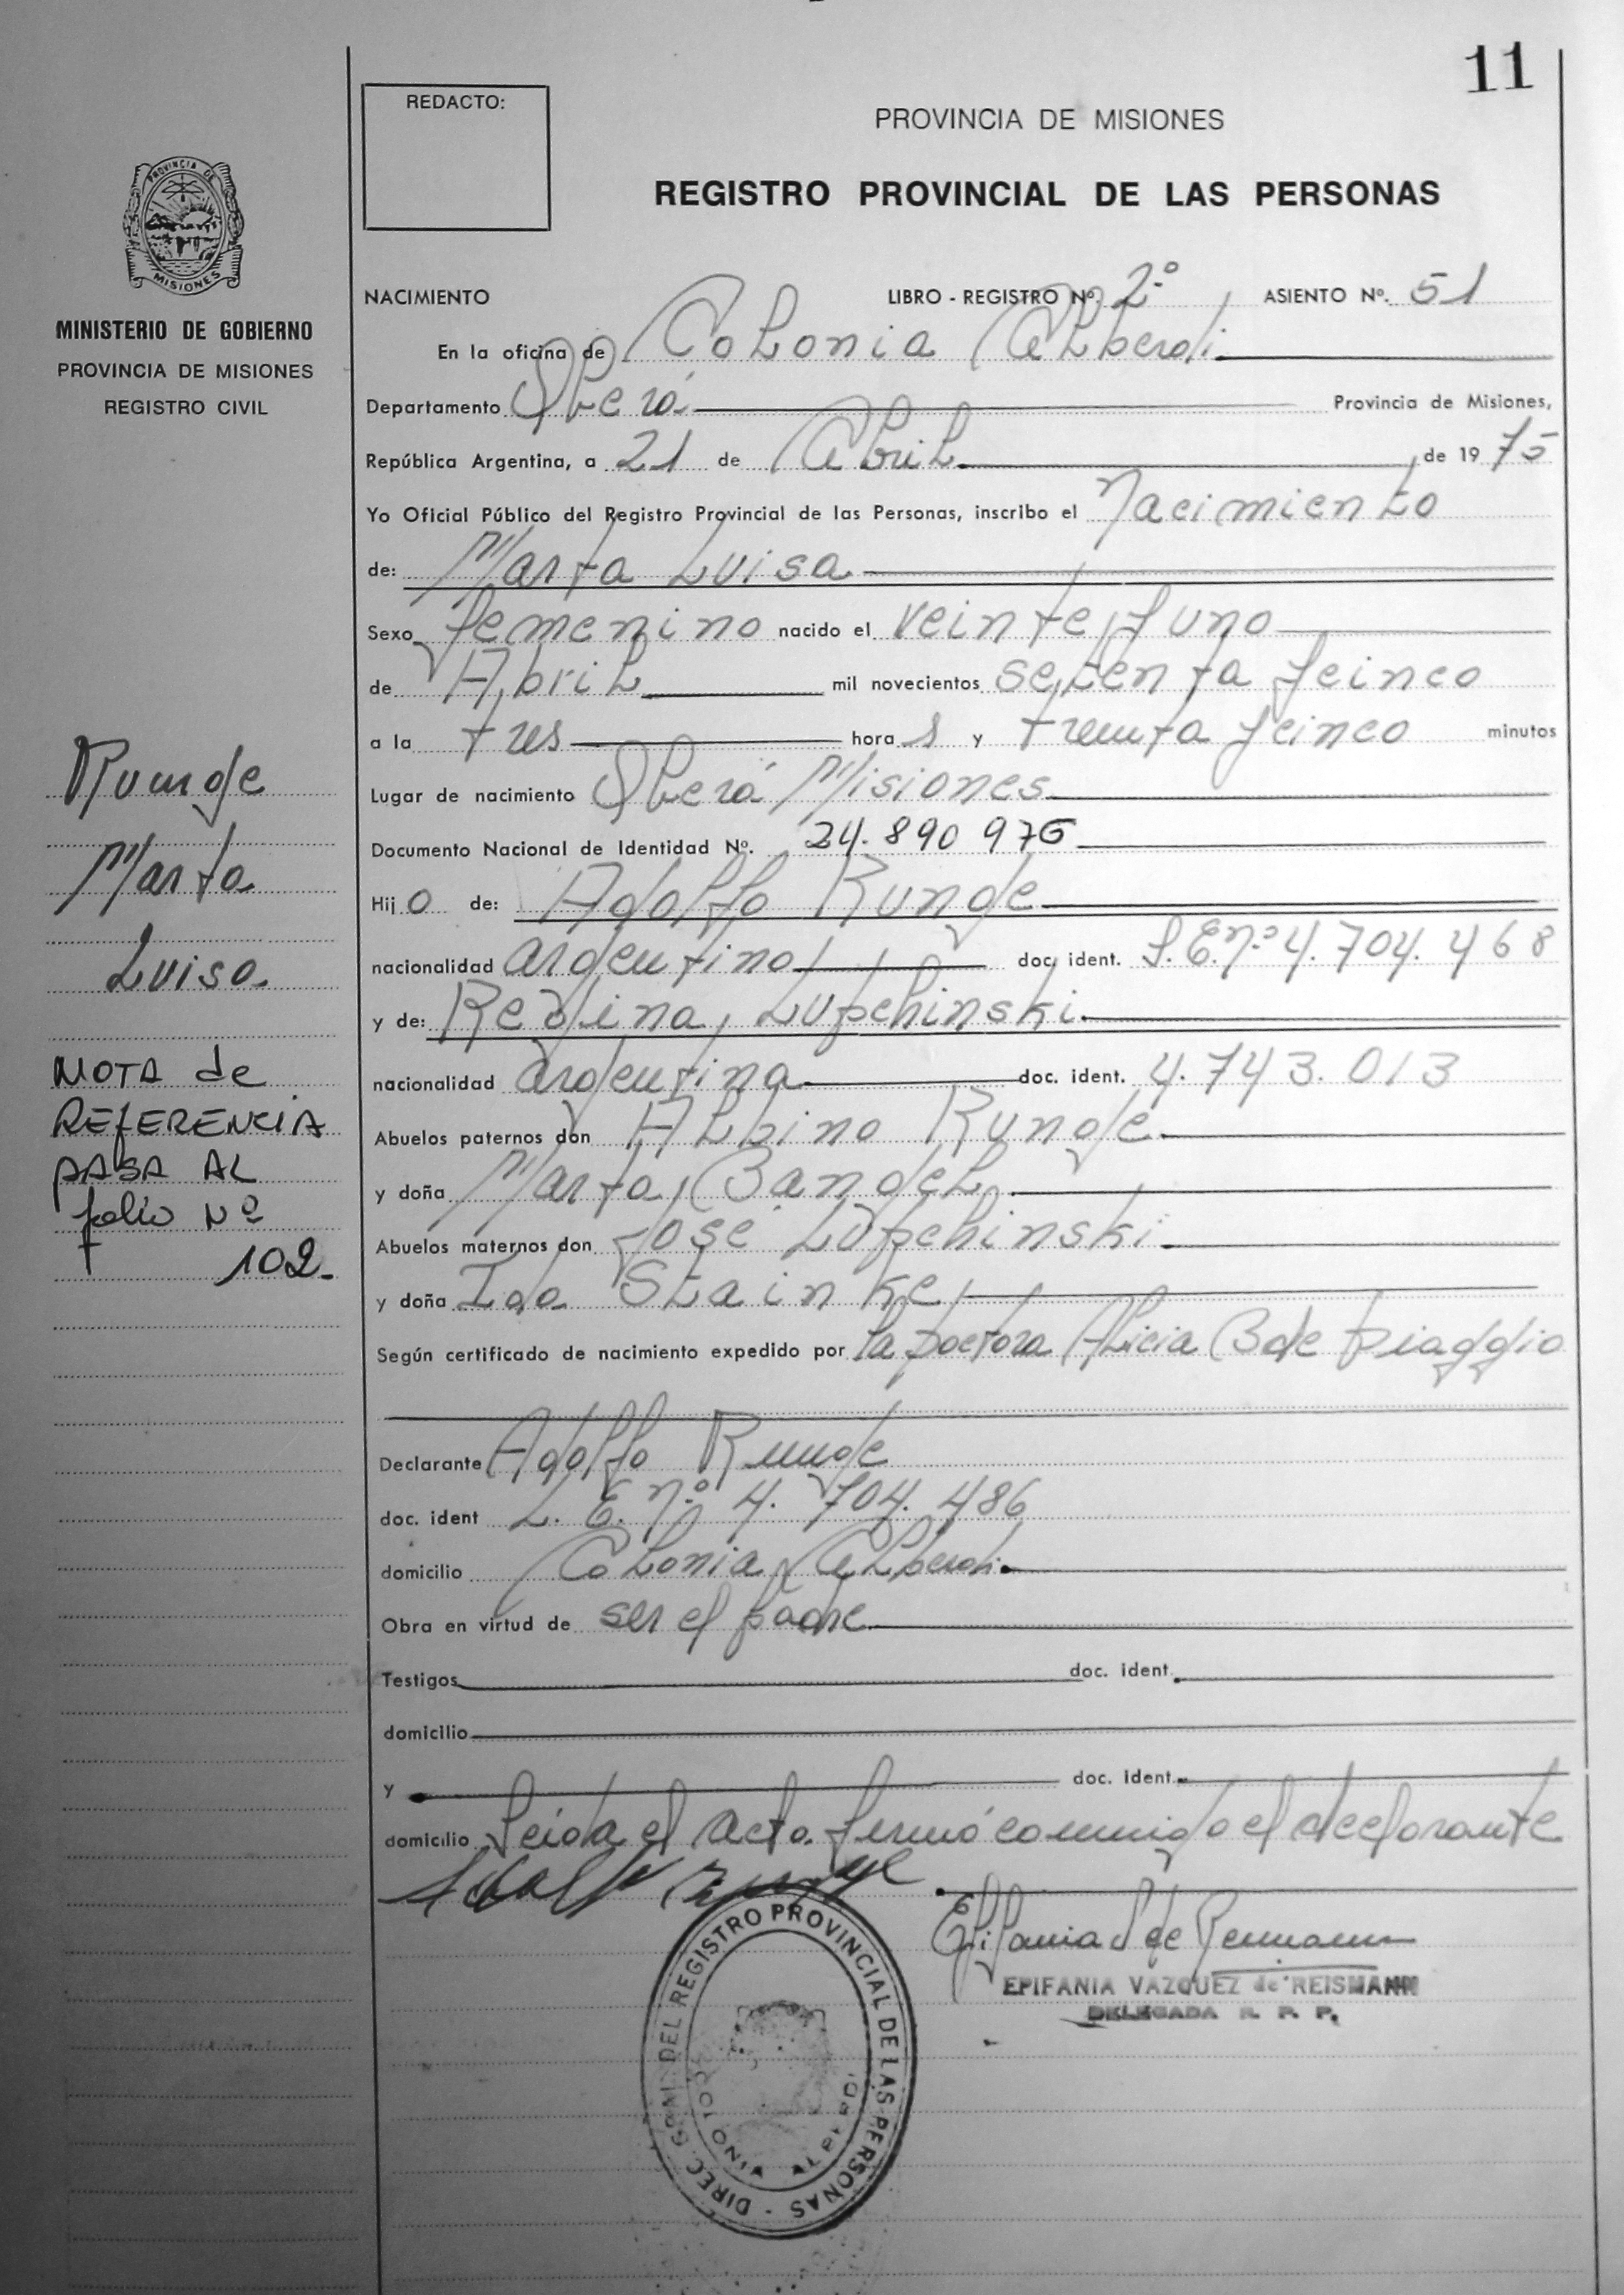 11
REDACTO:
PROVINCIA DE MISIONES
REGISTRO PROVINCIAL DE LAS PERSONAS
PROVINCIA DE
MISIONES
MINISTERIO DE GOBIERNO
PROVINCIA DE MISIONES
REGISTRO CIVIL
NACIMIENTO LIBRO - REGISTRO Nº. 2º ASIENTO Nº. 51
En la oficina de Colonia Alberdi
Departamento Oberá Provincia de Misiones,
República Argentina, a 21 de Abril de 1975
Yo Oficial Público del Registro Provincial de las Personas, inscribo el Nacimiento
de: Marta Luisa
Sexo femenino nacido el veinte y uno
de Abril mil novecientos setenta y cinco
a la tres hora s y treinta y cinco minutos
Lugar de nacimiento Oberá Misiones
Documento Nacional de Identidad Nº. 24.890 976
Hij a de: Adolfo Runge
nacionalidad argentino doc. ident. L.E.nº 4.704.468
y de: Regina, Lupchinski
nacionalidad argentina doc. ident. 4.743.013
Abuelos paternos don Albino Runge
y doña Marta, Bangel
Abuelos maternos don José Lupchinski
y doña Ida Stainke
Según certificado de nacimiento expedido por la Doctora Alicia B de Piaggio
Declarante Adolfo Runge
doc. ident L. E. nº. 4. 704. 486
domicilio Colonia Alberdi
Obra en virtud de ser el padre
Testigos doc. ident.
domicilio
y doc. ident.
domicilio Leida el acta. firmó conmigo el declarante
Adolfo Runge
Epifania V de Reismann
EPIFANIA VAZQUEZ de REISMANN
DELEGADA R. P. P.
DIREC. GRAL. DEL REGISTRO PROVINCIAL DE LAS PERSONAS -
COLONIA ALBERDI
Runge
Marta
Luisa
NOTA de
REFERENCIA
PASA AL
folio Nº
102.